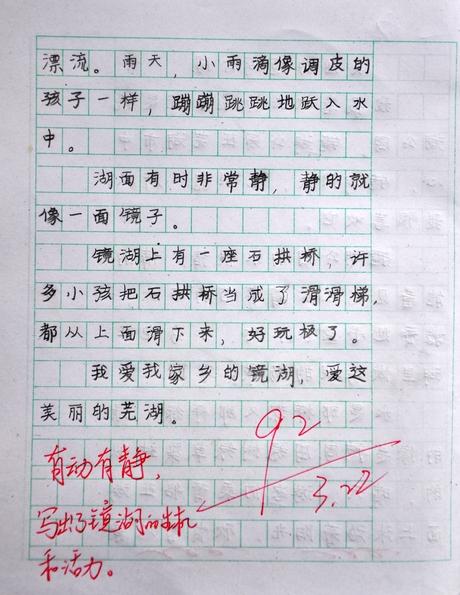 漂流。雨天，小雨滴像调皮的
孩子一样，蹦蹦跳跳地跃入水
中。
湖面有时非常静，静的就
像一面镜子。
镜湖上有一座石拱桥，许
多小孩把石拱桥当成了滑滑梯，
都从上面滑下来，好玩极了。
我爱我家乡的镜湖，爱这
美丽的芜湖。
92
3.22
有动有静，
写出了镜湖的生机
和活力。